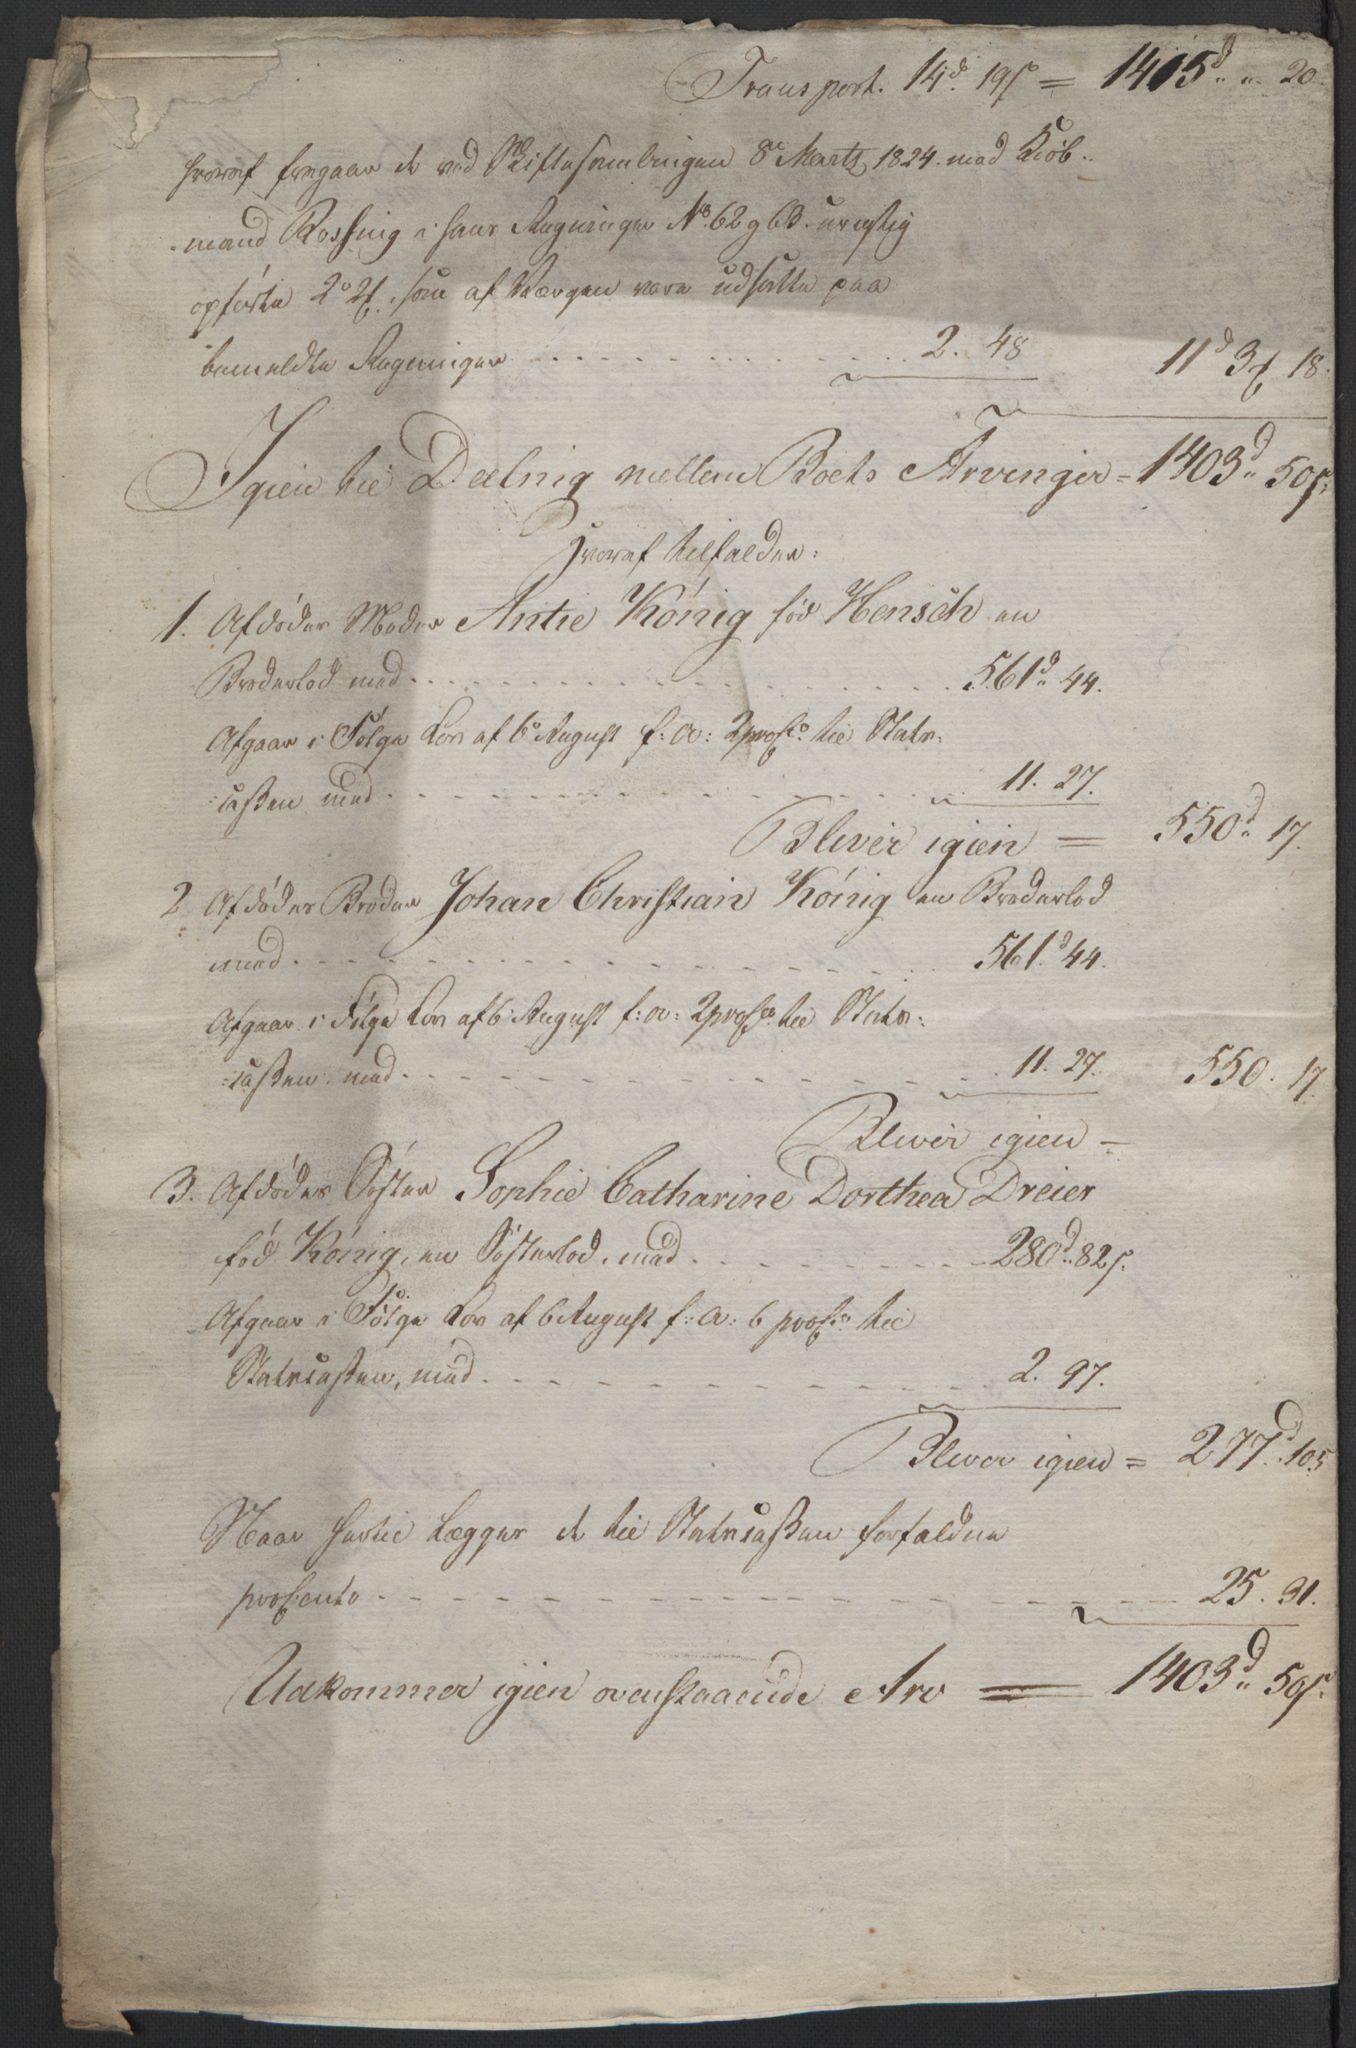 Transport. 14d. 19s = 1415d „ 20.
hvoraf fragaar de ved Skiftesamlingen 8de Martz 1824. med Kiöb-
mand Rossing i hans Regninger No. 62 og 63. urigtig
opförte 2d 2f. som af Værgen vare udsatte paa
bemeldte Regninger . . . . . . 2. 48 11d 3f 18.
Igien til Deeling mellem Boets Arvinger = 1403d „ 50s.
hvoraf tilfalder:
1. Afdödes Moder Antie König föd Hensch en
Broderlod med . . . . . . 561d „ 44.
Afgaar i Fölge Lov af 6te August f: A: 2 prosto til Stats-
cassen med . . . . . . 11. 27.
Bliver igien = 550d „ 17.
2 Afdödes Broder Johan Christian König en Broderlod
med . . . . . . 561d. 44.
Afgaar i Fölge Lov af 6 August f: a: 2 prosto til Stats-
cassen med . . . . . . 11. 27. 550. 17.
Bliver igien -
3. Afdödes Söster Sophie Catharine Dorthea Dreier
föd König, en Sösterlod, med . . . . . . 280d „ 82s.
Afgaar i Fölge Lov af 6 August f: A: 6 prosto til
Statscassen, med . . . . . . 2. 97.
Bliver igien = 277d. 105
Naar hertil lægges de til Statscassen forfaldne
procento . . . . . . 25. 31.
Udkommer igien ovenstaaende Arv = 1403d „ 50s.